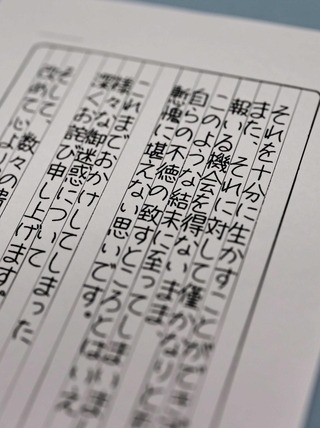 それを十分に生かすことができず
また、それに対して僅かなりとも
報いる機会を得ないまま
このような結末に至ってしまい
自らの不徳の致すところとはいえ
慙愧に堪えない思いです。
これまでおかけしてしまった
様々な御迷惑について
深くお詫び申し上げます。
そして、数々の
改めて心よりの